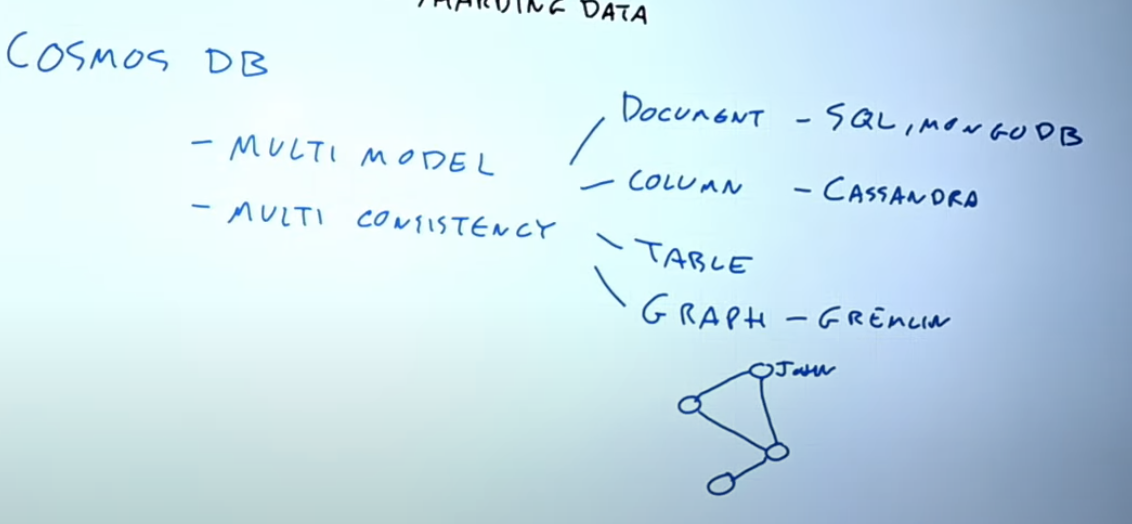 DATA
COSMOS DB
- MULTI MODEL
- MULTI CONSISTENCY
DOCUMENT - SQL, MONGODB
- COLUMN - CASSANDRA
TABLE
GRAPH - GREMLIN
JOHN